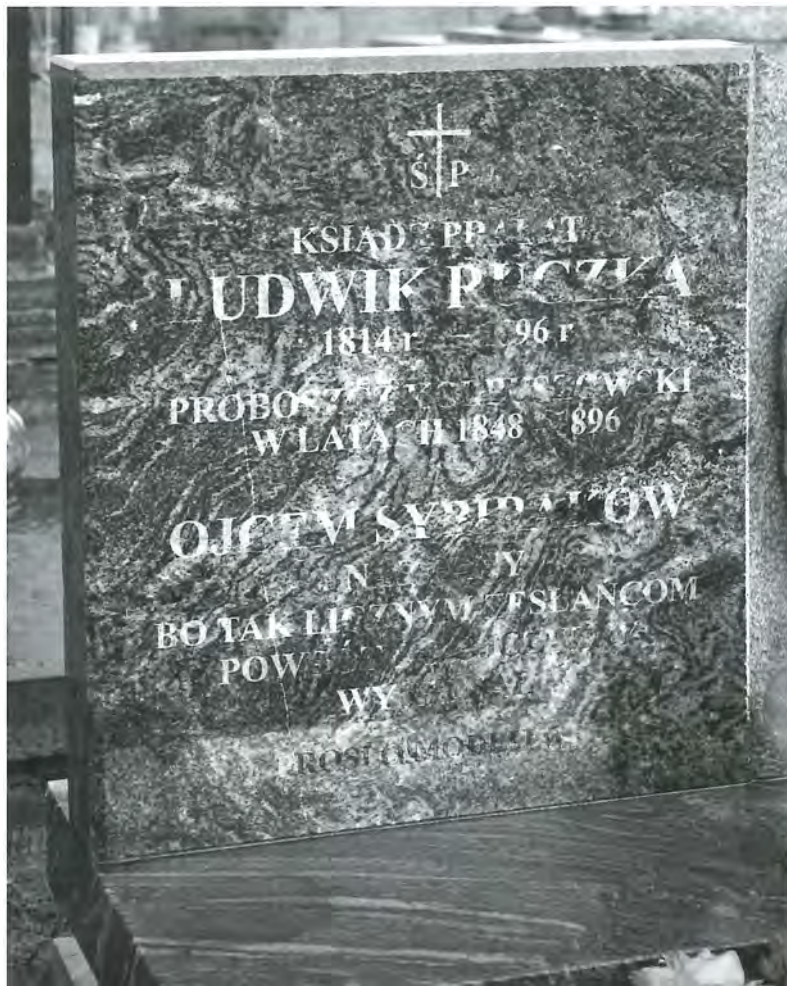 Ś P
KSIĄDZ PRAŁAT
LUDWIK RUCZKA
1814 r — 1896 r
PROBOSZCZ KOLBUSZOWSKI
W LATACH 1848 – 1896
OJCEM SYBIRAKÓW
BO TAK LICZNYM ZESŁAŃCOM
PROSI O MODLITWĘ